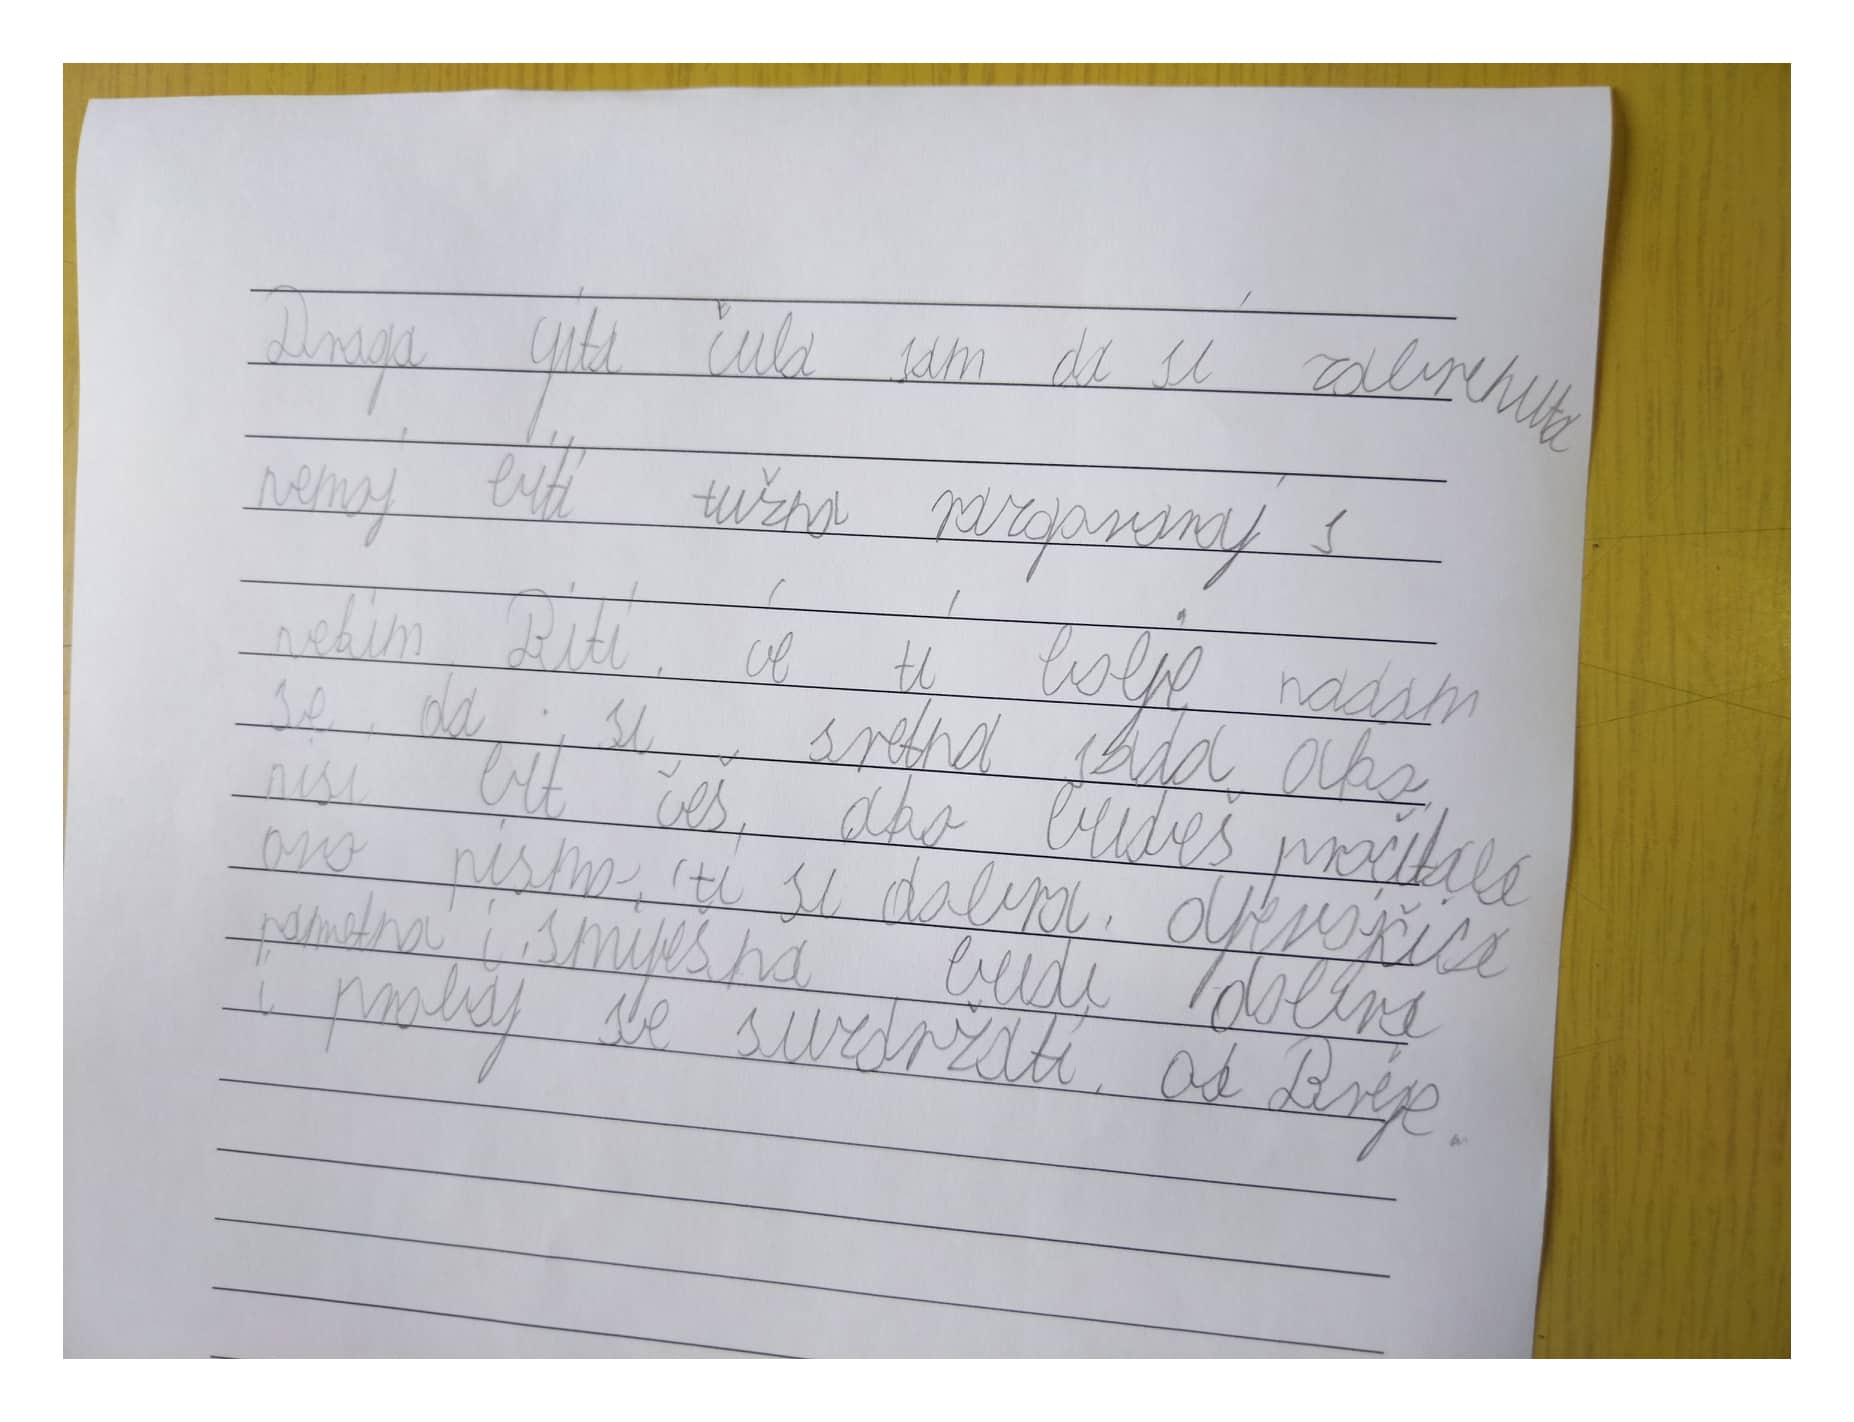 Draga gita čula sam da si zabrenuta
nemoj biti tužna razgovaraj s
nekim Biti. će ti bolje nadam
se. da si sretna sada ako
nisi bit češ, ako budeš pročitala
ovo pismo, ti si dobra. djevojčica
pametna i smiješna budi dobra
i probaj se suzdržati. od Brige.